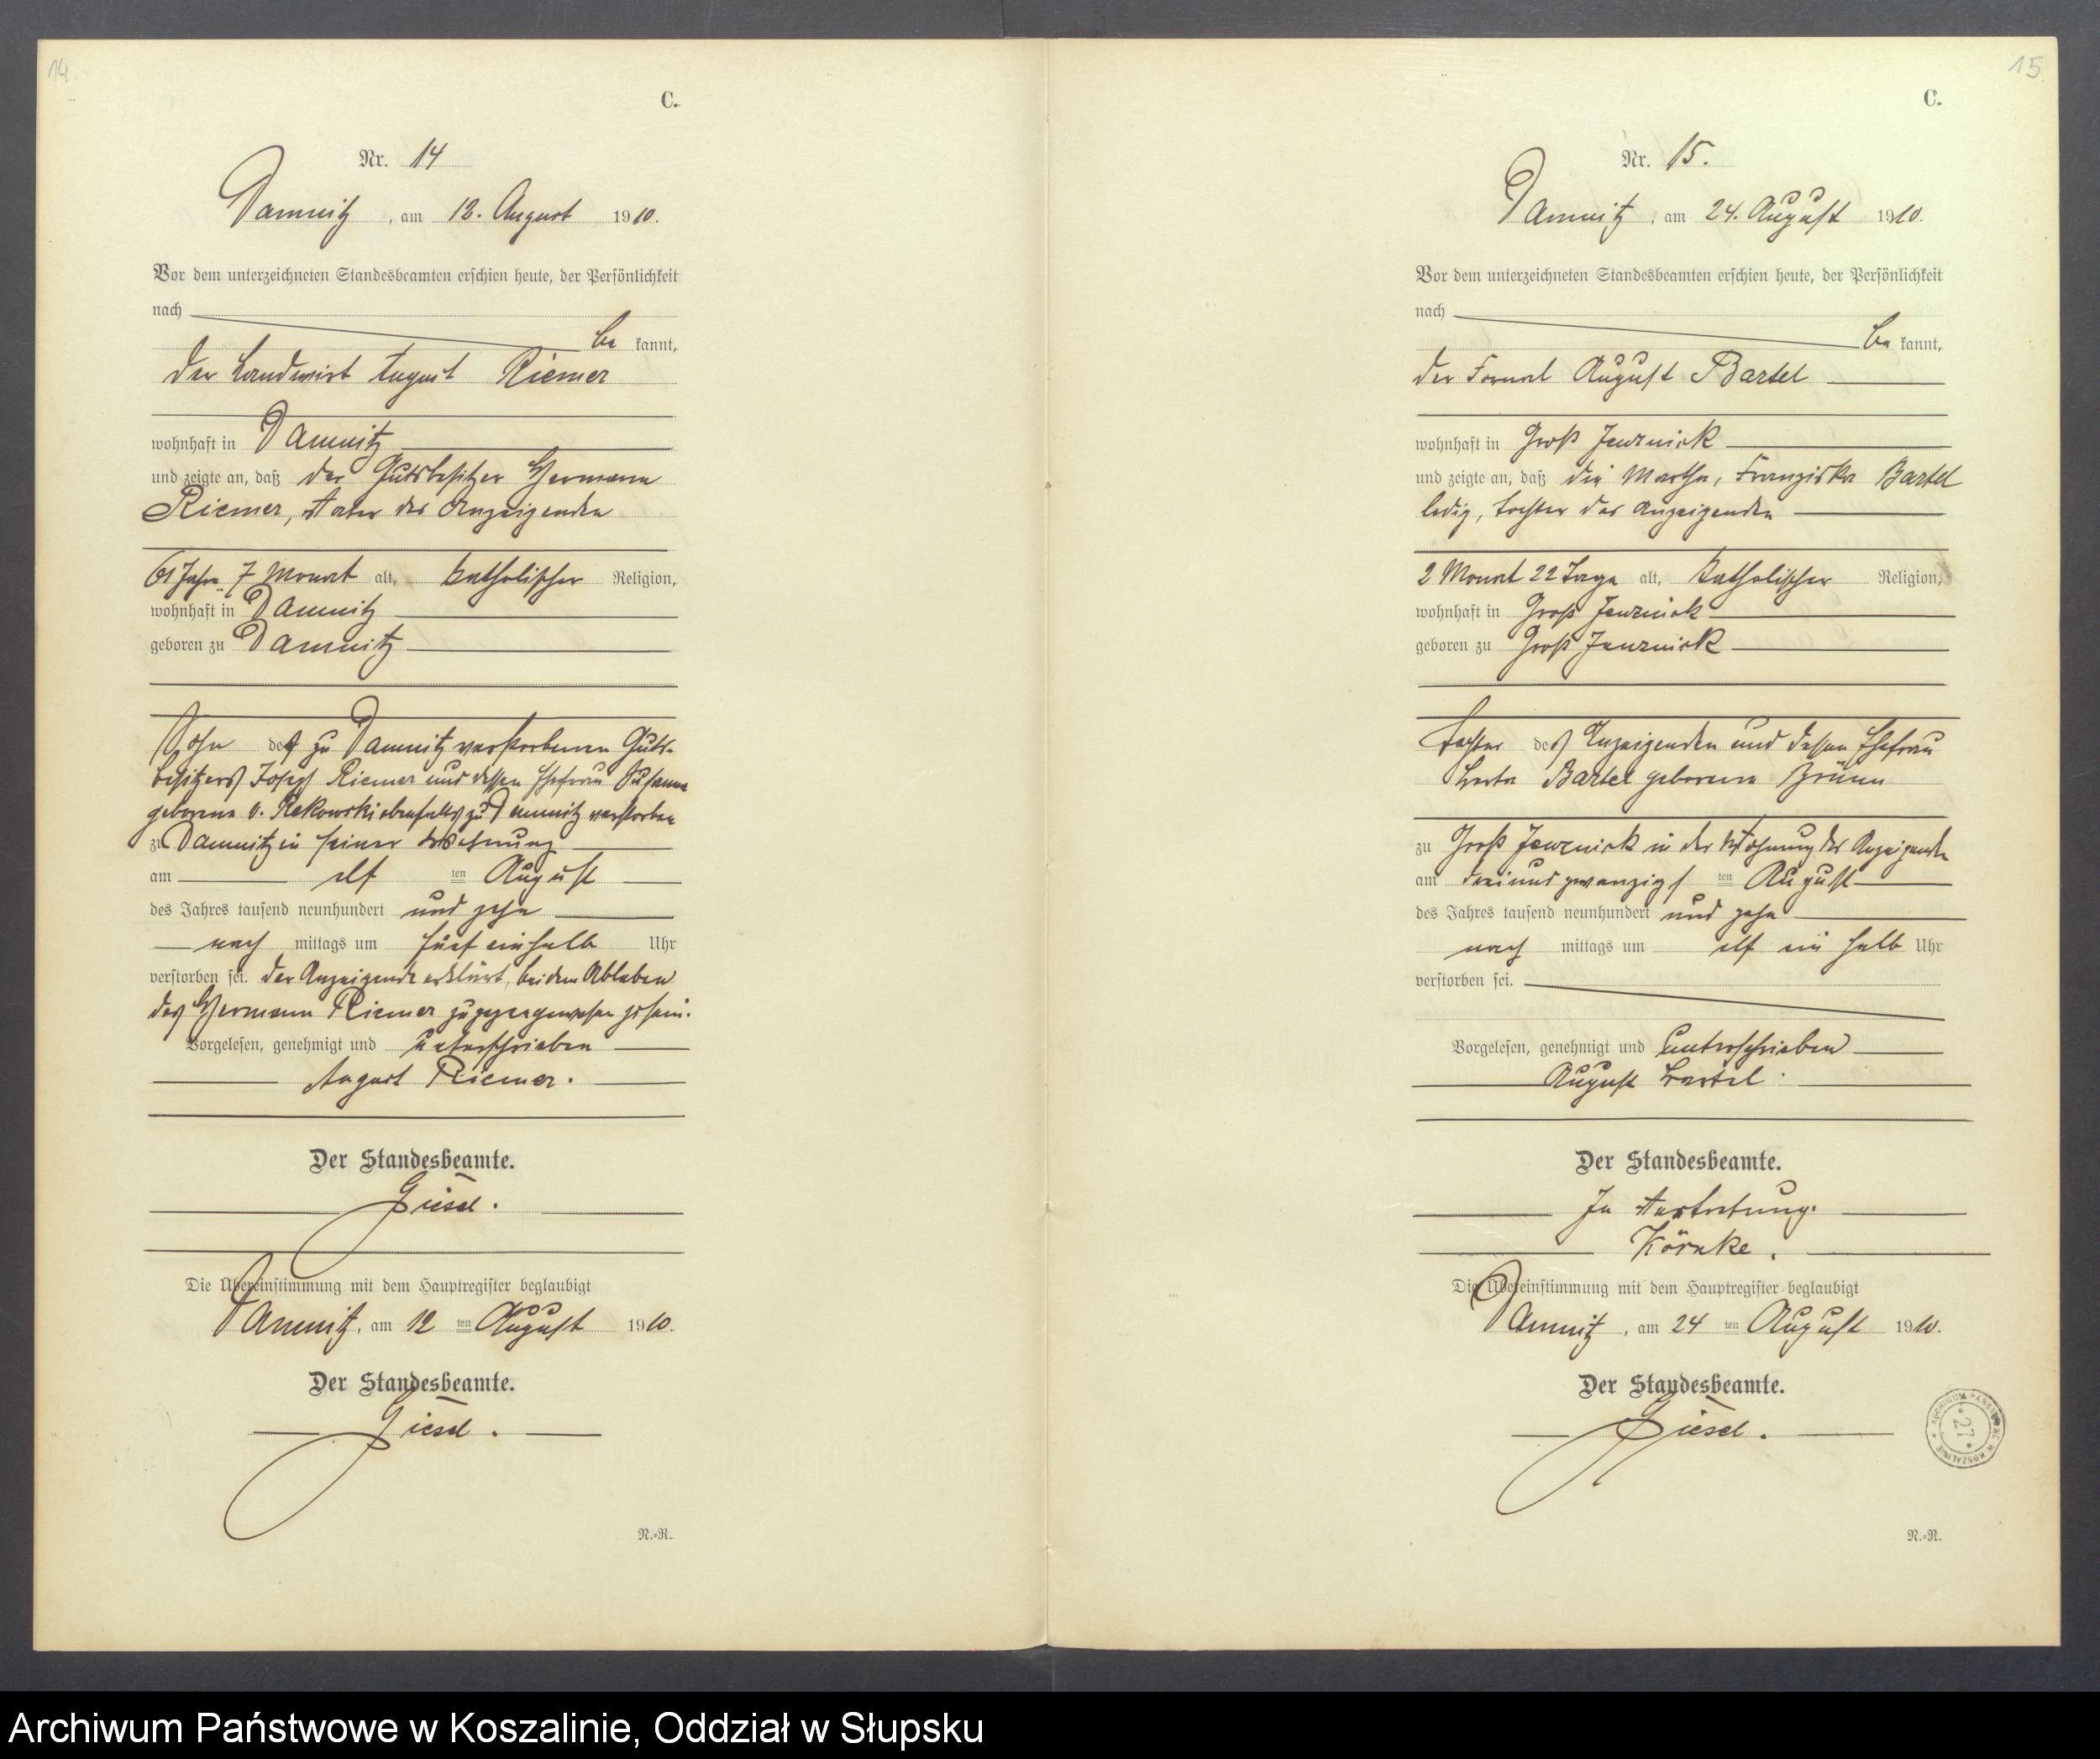 14.
C.
Nr. 14
Damnitz, am 12. August 1910.
Vor dem unterzeichneten Standesbeamten erschien heute, der Persönlichkeit
nach
be kannt,
der Landwirt August Riemer
wohnhaft in Damnitz
und zeigte an, daß der Gutsbesitzer Hermann
Riemer, Vater des Anzeigenden
61 Jahre 7 Monat alt, katholischer Religion,
wohnhaft in Damnitz
geboren zu Damnitz
Sohn des zu Damnitz verstorbenen Guts-
besitzers Josef Riemer und dessen Ehefrau Susanna
geborene v. Rekowski ebenfalls zu Damnitz verstorben
zu Damnitz in seiner Wohnung
am elf ten August
des Jahres tausend neunhundert und zehn
nach mittags um fünf einhalb Uhr
verstorben sei. Der Anzeigende erklärt, bei dem Ableben
des Hermann Riemer zugegen gewesen zu sein.
Vorgelesen, genehmigt und unterschrieben
August Riemer.
Der Standesbeamte.
Giesel.
Die Übereinstimmung mit dem Hauptregister beglaubigt
Damnitz, am 12 ten August 1910.
Der Standesbeamte.
Giesel.
N.-R.
15.
C.
Nr. 15.
Damnitz, am 24. August 1910.
Vor dem unterzeichneten Standesbeamten erschien heute, der Persönlichkeit
nach
be kannt,
der August Bartel
wohnhaft in Groß Jenznick
und zeigte an, daß die Martha, Franziska Bartel
ledig, Tochter des Anzeigenden
2 Monat 22 Tage alt, katholischer Religion,
wohnhaft in Groß Jenznick
geboren zu Groß Jenznick
Tochter des Anzeigenden und dessen Ehefrau
Bartel geborene
zu Groß Jenznick in der Wohnung des Anzeigenden
am dreiundzwanzigs ten August
des Jahres tausend neunhundert und zehn
nach mittags um elf ein halb Uhr
verstorben sei.
Vorgelesen, genehmigt und unterschrieben
August Bartel.
Der Standesbeamte.
In Vertretung.
Körnke.
Die Übereinstimmung mit dem Hauptregister beglaubigt
Damnitz, am 24 ten August 1910.
Der Standesbeamte.
Giesel.
ARCHIWUM PAŃSTWOWE W KOSZALINIE
* 27 *
N.-R.
Archiwum Państwowe w Koszalinie, Oddział w Słupsku